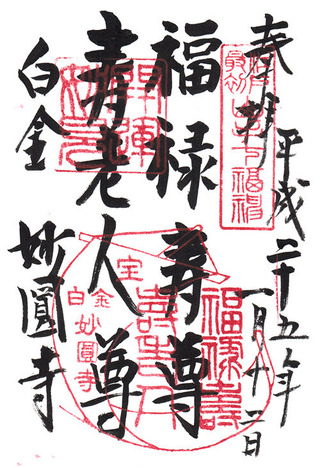 奉拝 平成二十五年一月十二日
福禄寿尊
寿老人尊
白金 妙圓寺
開運
妙見
福禄壽
寿老人
白金
妙圓寺